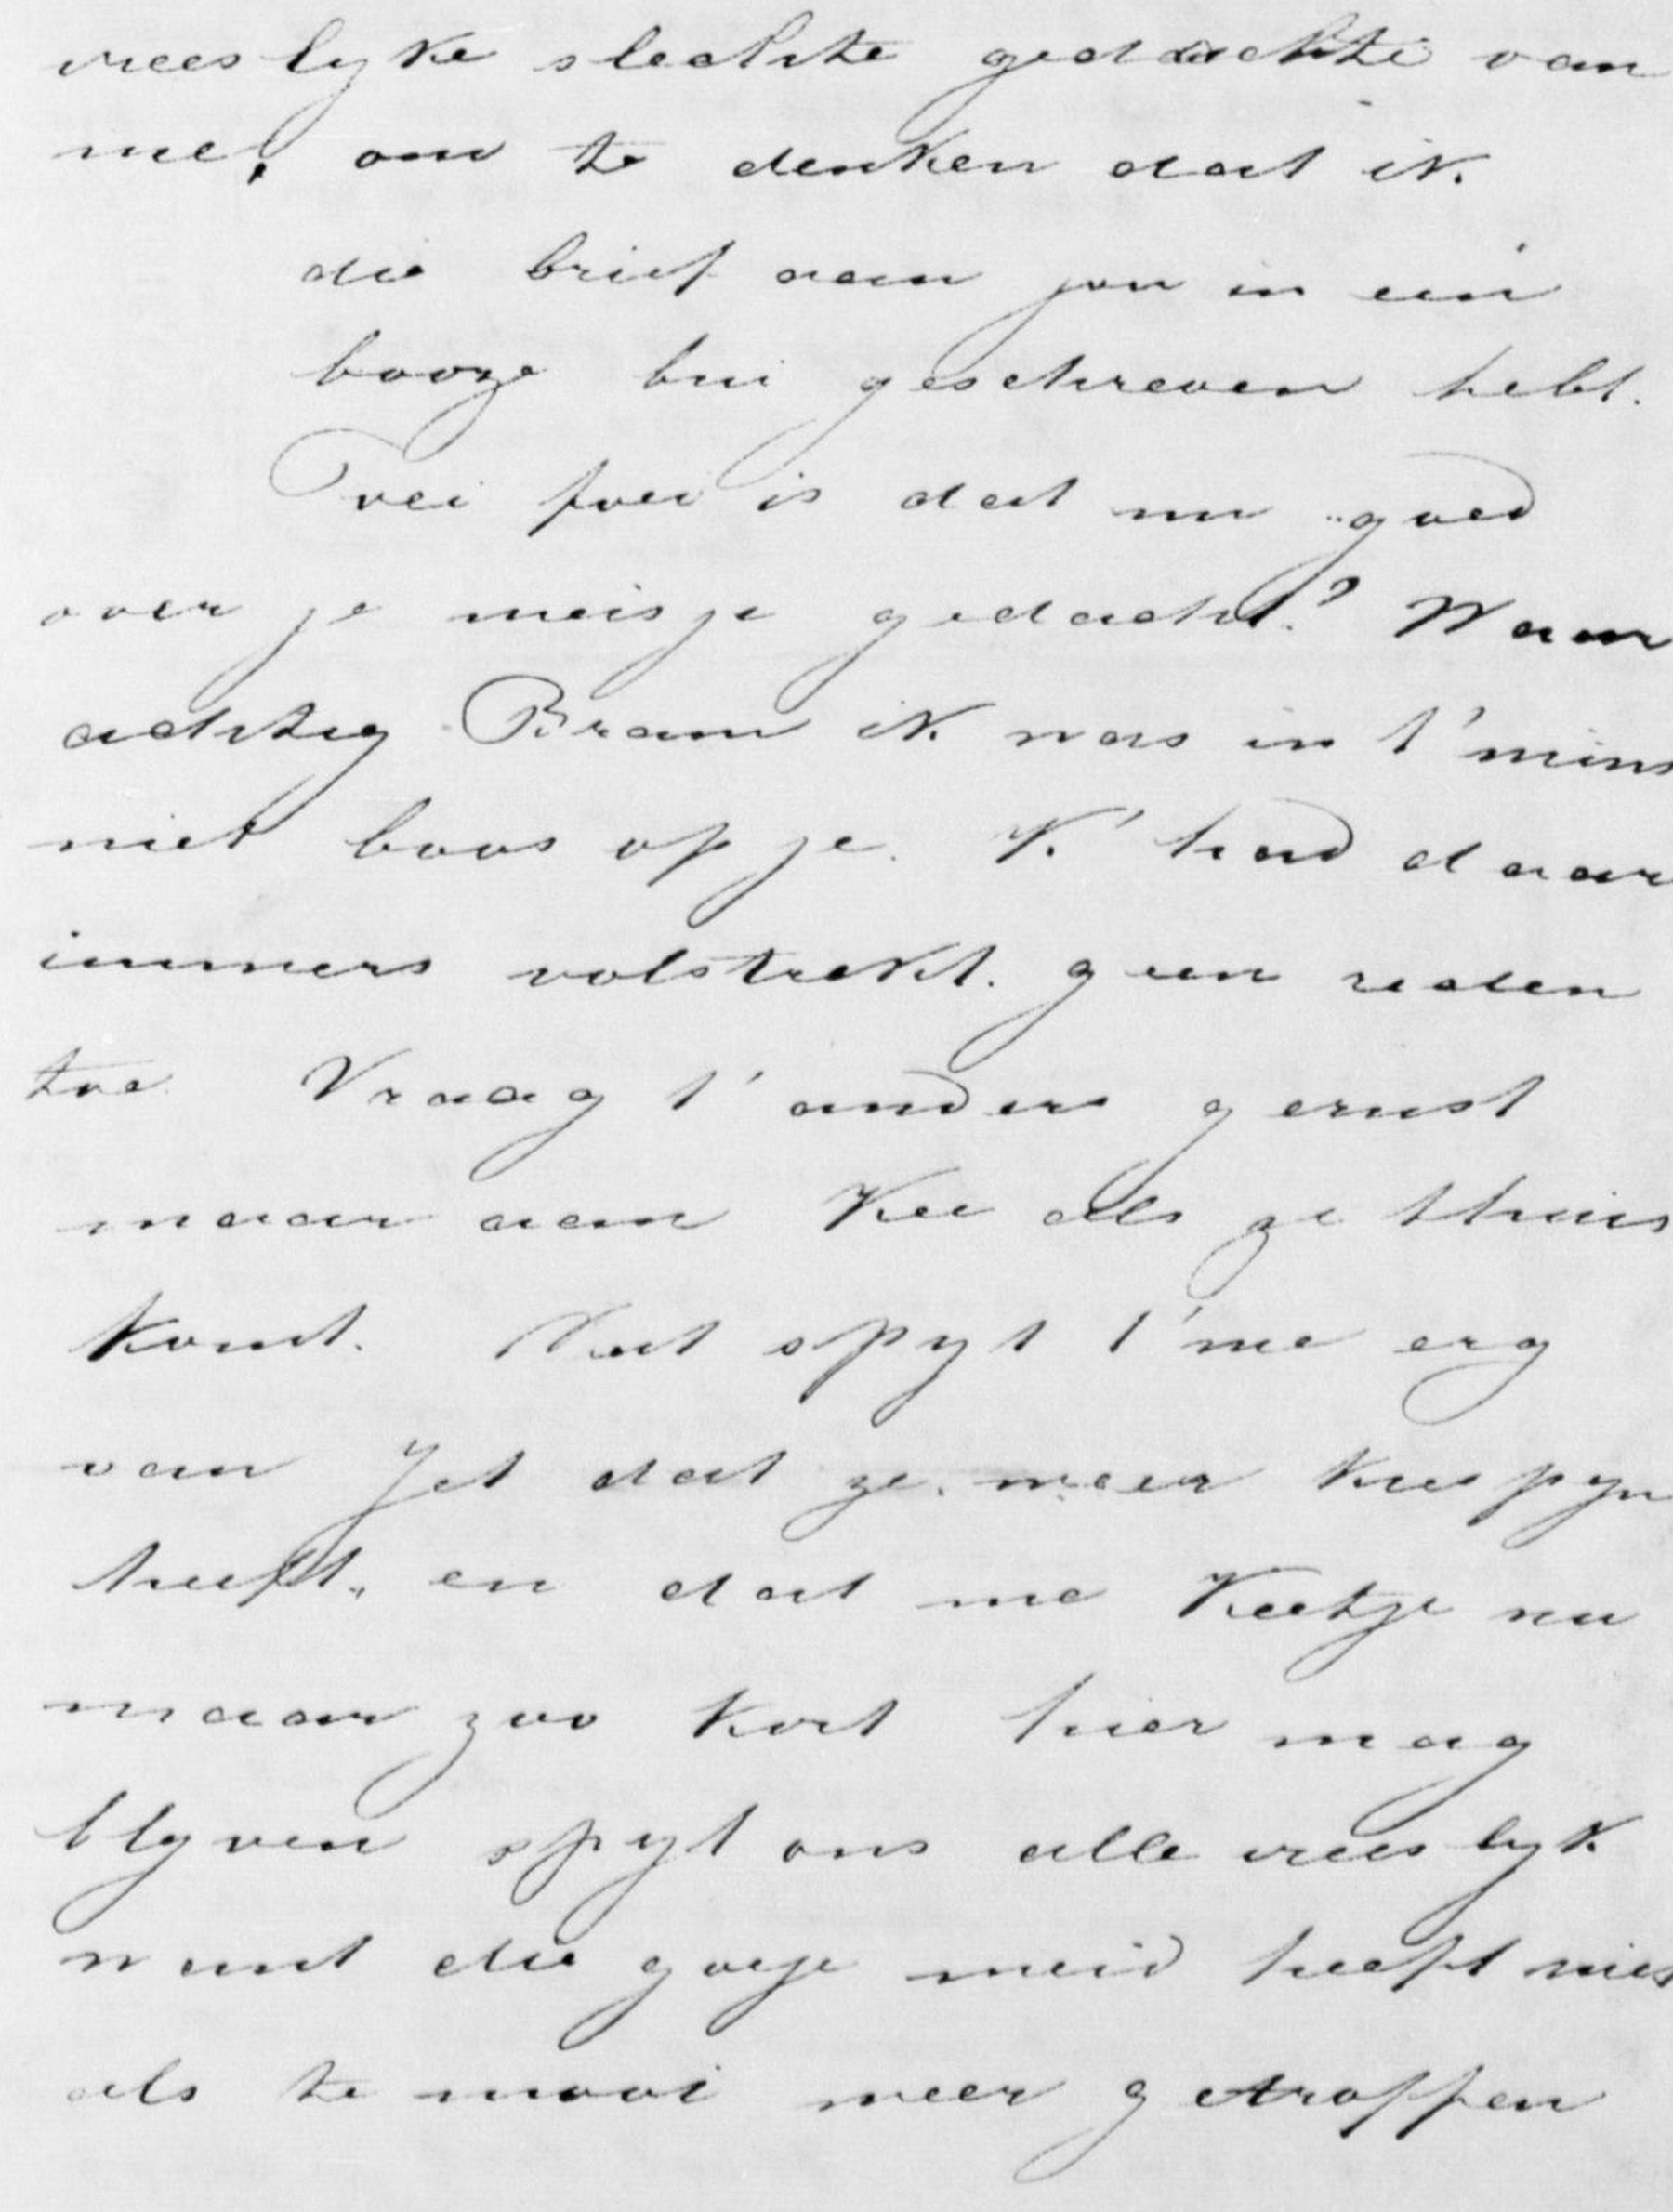 vreeslyke slechte gedachte van
me, om te denken dat ik
die brief aan jou in een
booze bui geschreven hebt.
Foei foei is dat nu goed
over je meisje gedacht? Waar
achtig Bram ik was in t' mins
niet boos op je. K' had daar
immers volstrekt geen reden
toe. Vraag t' anders gerust
maar aan Kee als ze thuis
komt. Wat spyt t' me erg
van Jet dat ze weer kiespyn
heeft, en dat me Keetje nu
maar zoo kort hier mag
blyven spyt ons alle vreeslyk
want die goeje meid heeft niet
als te mooi weer getroffen